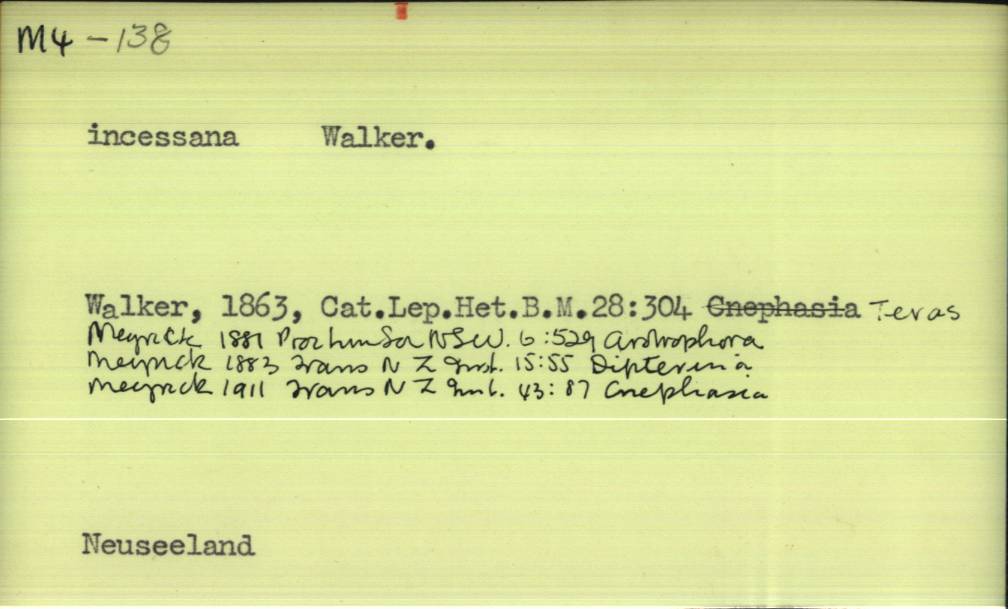 M4 - 138
incessana Walker.
Walker, 1863, Cat.Lep.Het.B.M.28:304 Cnephasia Teras
Meyrick 1881 Proc Linn Soc NSW. 6:529
Meyrick 1883 Trans N Z Inst. 15:55 Dipterina
Meyrick 1911 Trans N Z Inst. 43:87 Cnephasia
Neuseeland